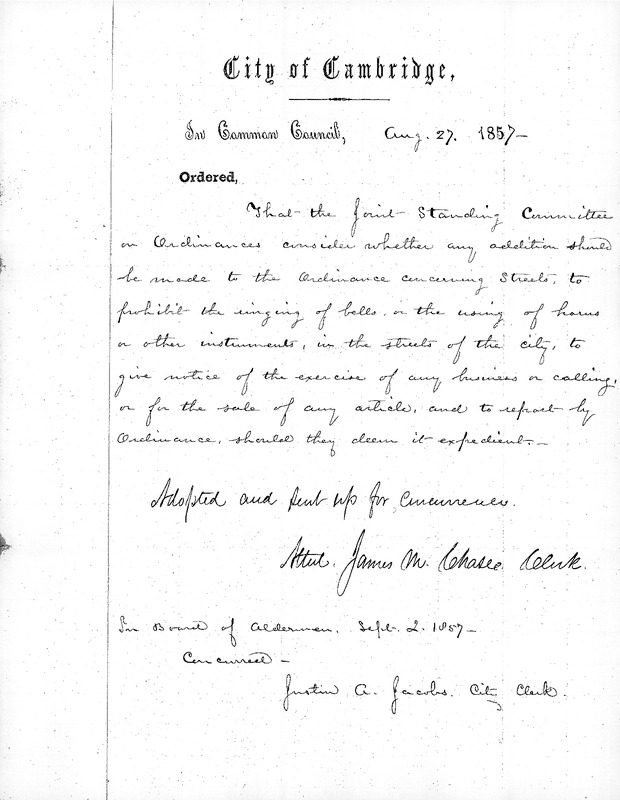 City of Cambridge,
In Common Council, Aug. 27. 1857-
Ordered,
That the Joint Standing Committee
on Ordinances consider whether any addition should
be made to the Ordinance concerning Streets, to
prohibit the ringing of bells, or the using of horns
or other instruments, in the streets of the city, to
give notice of the exercise of any business or calling,
or for the sale of any article, and to report by
Ordinance, should they deem it expedient.-
Adopted and sent up for concurrence.
Attest. James M. Chase. Clerk.
In Board of Aldermen, Sept. 2. 1857-
Concurred-
Justin A. Jacobs. City Clerk.